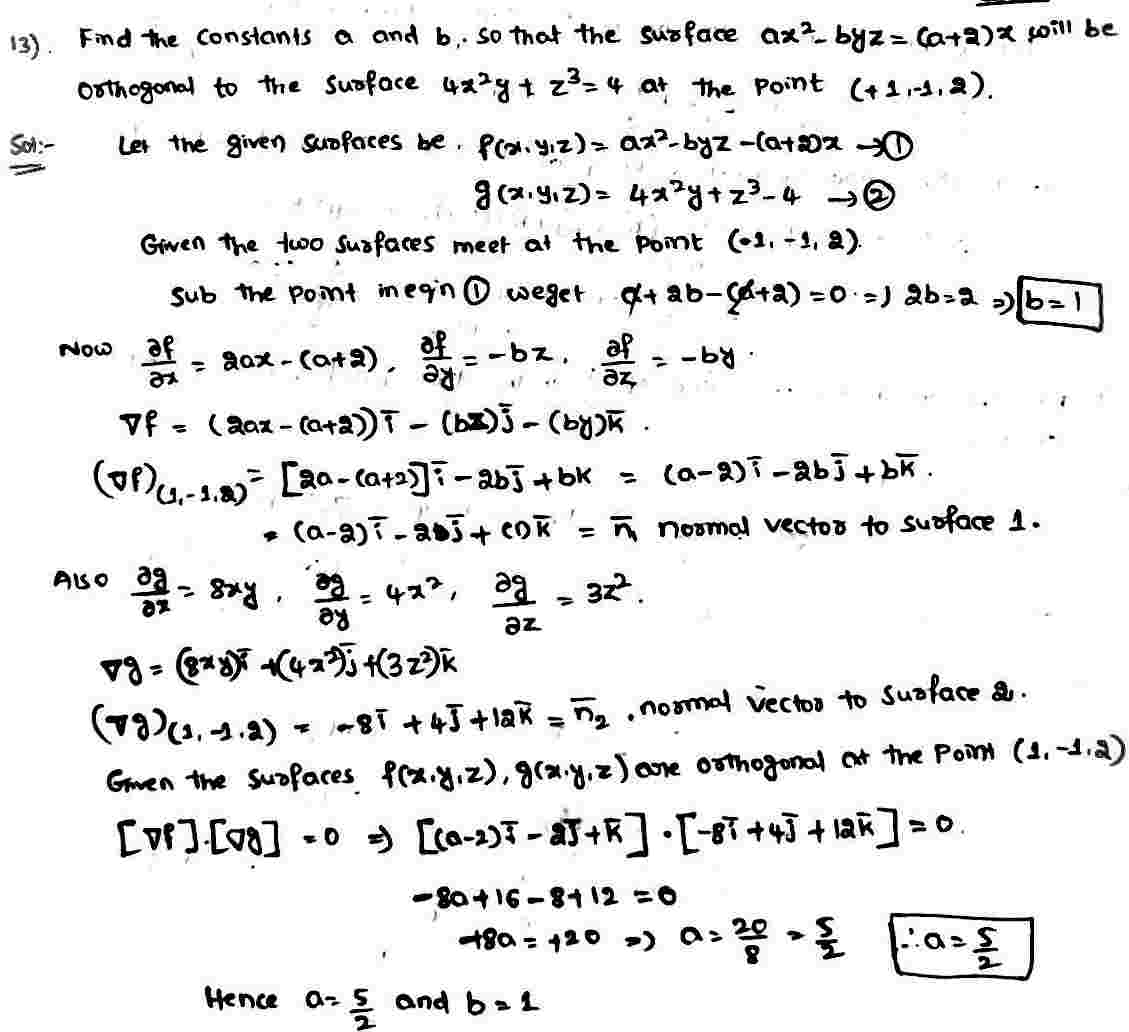 13). Find the constants a and b, so that the surface ax²-byz=(a+2)x will be
orthogonal to the surface 4x²y+z³=4 at the point (+1,-1,2).
Sol:- Let the given surfaces be, f(x,y,z)=ax²-byz-(a+2)x →①
g(x,y,z)= 4x²y+z³-4 →②
Given the two surfaces meet at the point (1,-1,2).
Sub the point in eqn ① we get, a+2b-(a+2)=0 ⇒ 2b=2 ⇒ b=1
Now ∂f/∂x = 2ax-(a+2), ∂f/∂y = -bz, ∂f/∂z = -by.
∇f = (2ax-(a+2))i̅ - (bz)j̅ - (by)k̅.
(∇f)(1,-1,2) = [2a-(a+2)]i̅ - 2bj̅ + bk = (a-2)i̅ - 2bj̅ + bk̅.
= (a-2)i̅ - 2j̅ + (1)k̅ = n̅₁ normal vector to surface 1.
Also ∂g/∂x = 8xy, ∂g/∂y = 4x², ∂g/∂z = 3z².
∇g = (8xy)i̅ + (4x²)j̅ + (3z²)k̅
(∇g)(1,-1,2) = -8i̅ + 4j̅ + 12k̅ = n̅₂, normal vector to surface 2.
Given the surfaces f(x,y,z), g(x,y,z) are orthogonal at the point (1,-1,2)
[∇f].[∇g] = 0 ⇒ [(a-2)i̅ - 2j̅ + k̅].[-8i̅ + 4j̅ + 12k̅] = 0.
-8a+16-8+12=0
+8a = +20 ⇒ a = 20/8 = 5/2 ∴ a = 5/2
Hence a = 5/2 and b = 1